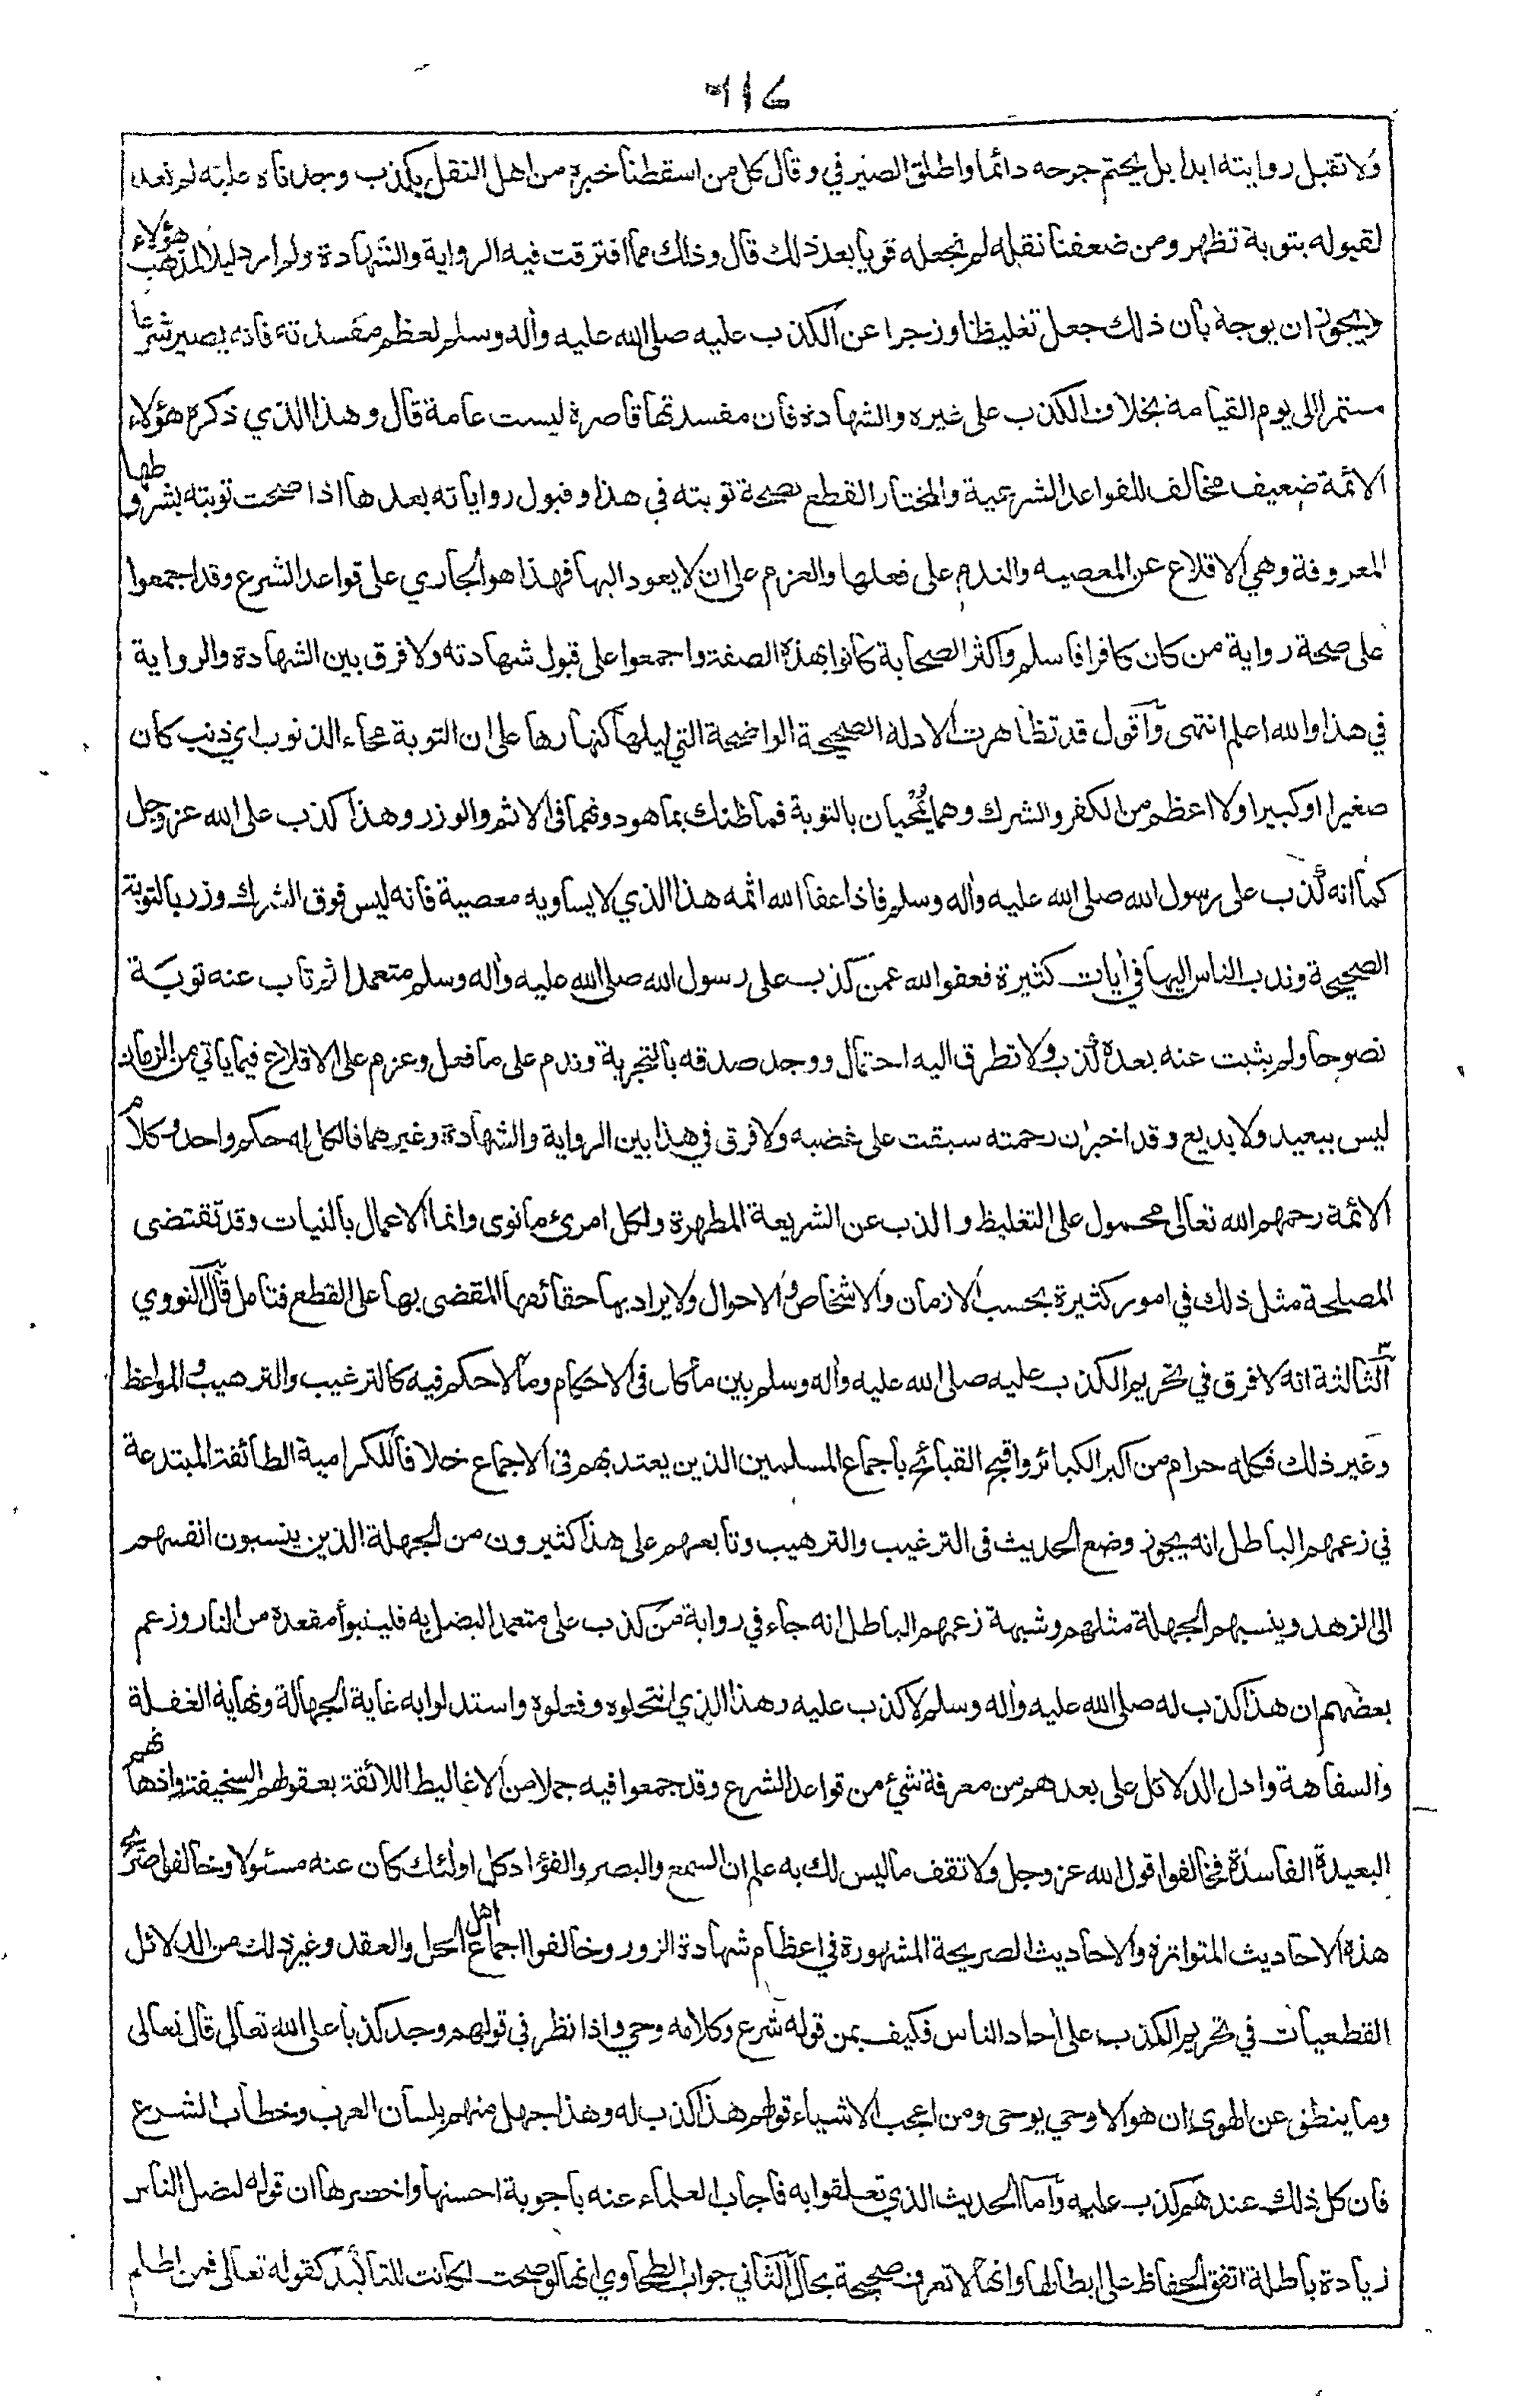 ۱۱۶
ولا تقبل روايته ابدا بل يحتم جرحه دائما واطلق الصيرفي وقال كل من اسقطنا خبره من اهل النقل بكذب وجدناه عليه لم نعد
لقبوله بتوبة تظهر ومن ضعفنا نقله لم نجعله قويا بعد ذلك قال وذلك مما افترقت فيه الرواية والشهادة ولم ار دليلا لمذهب هؤلاء
ويجوز ان يوجه بان ذلك جعل تغليظا وزجرا عن الكذب عليه صلى الله عليه واله وسلم لعظم مفسدته فانه يصير شرعا
مستمرا الى يوم القيامة بخلاف الكذب على غيره والشهادة فان مفسدتها قاصرة ليست عامة قال وهذا الذي ذكره هؤلاء
الائمة ضعيف مخالف للقواعد الشرعية والمختار القطع بصحة توبته في هذا وقبول رواياته بعدها اذا صحت توبته بشروطها
المعروفة وهي الاقلاع عن المعصيه والندم على فعلها والعزم على ان لا يعود اليها فهذا هو الجاري على قواعد الشرع وقد اجمعوا
على صحة رواية من كان كافرا فاسلم واكثر الصحابة كانوا بهذه الصفة واجمعوا على قبول شهادته ولا فرق بين الشهادة والرواية
في هذا والله اعلم انتهى وأقول قد تظاهرت الادلة الصحيحة الواضحة التي ليلها كنهارها على ان التوبة محاء الذنوب اي ذنب كان
صغيرا او كبيرا ولا اعظم من الكفر والشرك وهما يُمْحَيان بالتوبة فما ظنك بما هو دونهما في الاثم والوزر وهذا كذب على الله عز وجل
كما انه كذب على رسول الله صلى الله عليه واله وسلم فاذا عفا الله اثمه هذا الذي لا يساويه معصية فانه ليس فوق الشرك وزر بالتوبة
الصحيحة وندب الناس اليها في أيات كثيرة فعفو الله عمن كذب على رسول الله صلى الله عليه واله وسلم متعمدا ثم تاب عنه توبة
نصوحا ولم يثبت عنه بعده كذب ولا تطرق اليه احتمال ووجد صدقه بالتجربة وندم على ما فعل وعزم على الاقلاع فيما ياتي من الزمان
ليس ببعيد ولا بديع وقد اخبر ان رحمته سبقت على غضبه ولا فرق في هذا بين الرواية والشهادة وغيرهما فالكل له حكم واحد وكلام
الائمة رحمهم الله تعالى محمول على التغليظ والذب عن الشريعة المطهرة ولكل امرئ ما نوى وانما الاعمال بالنيات وقد تقتضى
المصلحة مثل ذلك في امور كثيرة بحسب الازمان والاشخاص والاحوال ولا يراد بها حقائقها المقضى بها على القطع فتامل قال النووي
الثالثة انه لا فرق في تحريم الكذب عليه صلى الله عليه واله وسلم بين ما كان في الاحكام وما لا حكم فيه كالترغيب والترهيب والمواعظ
وغير ذلك فكله حرام من اكبر الكبائر واقبح القبائح باجماع المسلمين الذين يعتد بهم في الاجماع خلافا للكرامية الطائفة المبتدعة
في زعمهم الباطل انه يجوز وضع الحديث في الترغيب والترهيب وتابعهم على هذا كثيرون من الجهلة الذين ينسبون انفسهم
الى الزهد وينسبهم الجهلة مثلهم وشبهة زعمهم الباطل انه جاء في رواية من كذب على متعمدا ليضل به فليتبوأ مقعده من النار وزعم
بعضهم ان هذا كذب له صلى الله عليه واله وسلم لا كذب عليه وهذا الذي انتحلوه وفعلوه واستدلوا به غاية الجهالة ونهاية الغفلة
والسفاهة وادل الدلائل على بعدهم من معرفة شيء من قواعد الشرع وقد جمعوا فيه جملا من الاغاليط اللائقة بعقولهم السخيفة واذهانهم
البعيدة الفاسدة فخالفوا قول الله عز وجل ولا تقف ما ليس لك به علم ان السمع والبصر والفؤاد كل اولئك كان عنه مسئولا وخالفوا صريح
هذه الاحاديث المتواترة والاحاديث الصريحة المشهورة في اعظام شهادة الزور وخالفوا اجماع اهل الحل والعقد وغير ذلك من الدلائل
القطعيات في تحريم الكذب على أحاد الناس فكيف بمن قوله شرع وكلامه وحي واذا نظر في قولهم وجد كذبا على الله تعالى قال تعالى
وما ينطق عن الهوى ان هو الا وحي يوحى ومن اعجب الاشياء قولهم هذا كذب له وهذا جهل منهم بلسان العرب وخطاب الشرع
فان كل ذلك عندهم كذب عليه وأما الحديث الذي تعلقوا به فاجاب العلماء عنه باجوبة احسنها واخصرها ان قوله ليضل الناس
زيادة باطلة اتفق الحفاظ على ابطالها وانها لا تعرف صحيحة بحال الثاني جواب الطحاوي انها لو صحت لكانت للتأكيد كقوله تعالى فمن اظلم